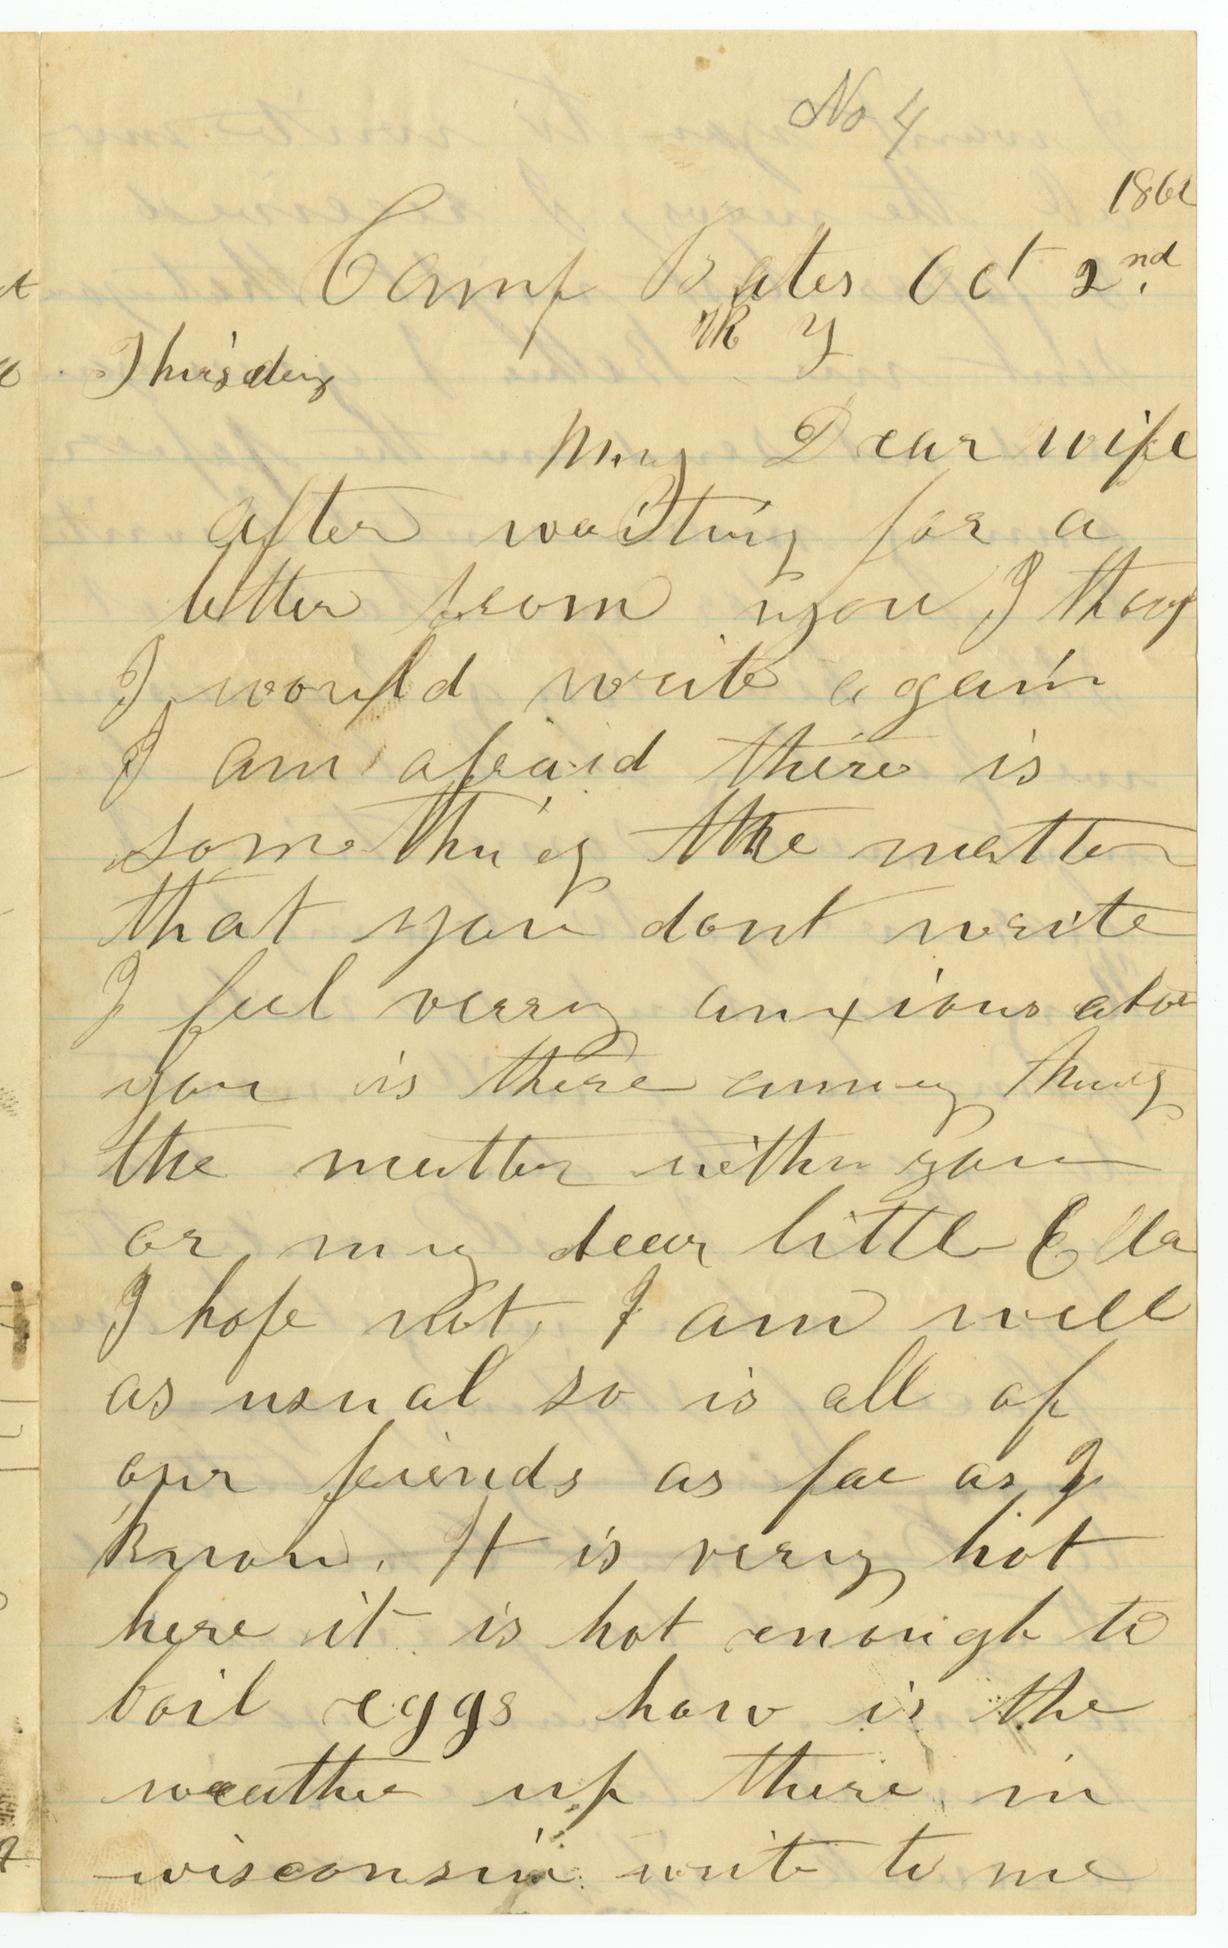 No 4
1862
Camp Bates Oct 2nd.
Ky
Thursday
My Dear wife
after waiting for a
letter from you I thoug
I would write again
I am afraid there is
something the matter
that you dont write
I feel verry anxious abou
you is there anny thing
the matter with you
or my dear little Ella
I hope not, I am well
as usual so is all of
our friends as far as I
know. It is verry hot
here it is hot enough to
boil eggs how is the
weather up there in
wisconsin write to me